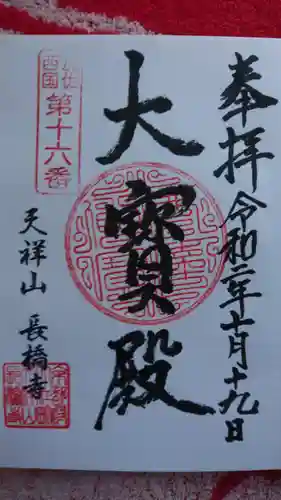 奉拝 令和二年七月十九日
大寳殿
西国
第十六番
天祥山 長橋寺